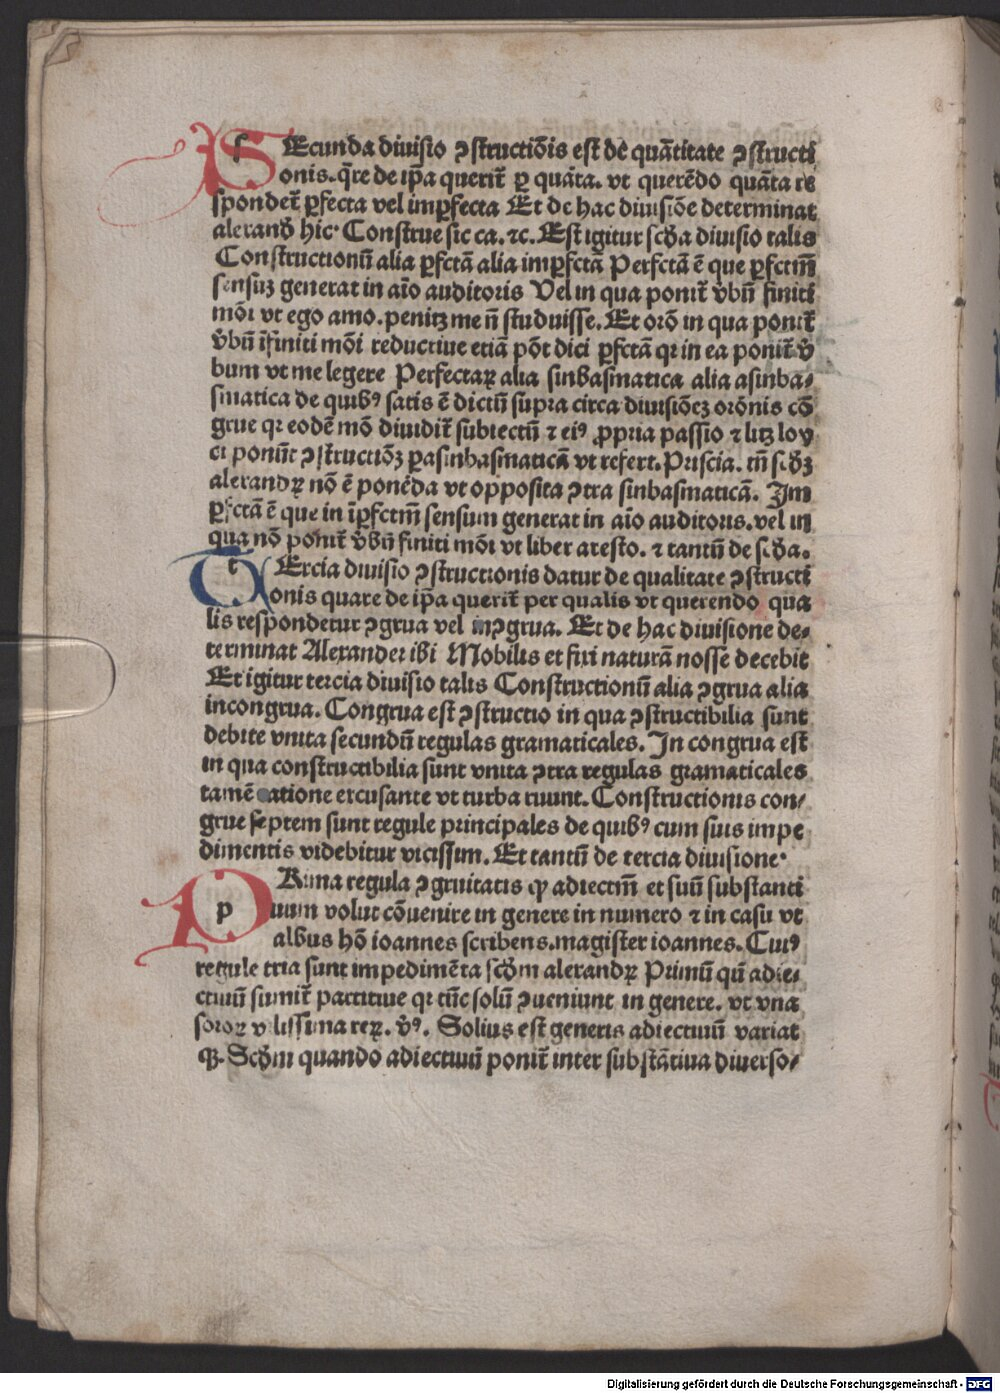 SEcunda diuisio ꝯstructiōis est de quātitate ꝯstructi
onis. q̄re de ip̄a querit᷑ ꝑ quāta. vt querēdo quāta re
spondet᷑ ꝑfecta vel imꝑfecta Et de hac diuisiōe determinat
alexand᷑ hic· Construe sic ca. ⁊c. Est igitur scḋa diuisio talis
Constructionū alia ꝑfctā alia imꝑfctā Perfctā ē que ꝑfctm̄
sensuꝫ generat in aīo auditoris Vel in qua ponit᷑ v̄bū finiti
mōi vt ego amo. penitꝫ me n̄ studuisse. Et orō in qua ponit᷑
v̄bū īfiniti mōi reductiue etiā pōt dici ꝑfctā qꝛ in ea ponit᷑ v̄
bum vt me legere Perfectaꝝ alia sinbasmatica alia asinba⸗
smatica de quibꝰ satis ē dictū supra circa diuisiōeꝫ orōnis cō
grue qꝛ eodē mō diuidit᷑ subiectū ⁊ eiꝰ ꝓpria passio ⁊ litꝫ loy
ci ponūt ꝯstructiōꝫ ꝑasinbasmaticā vt refert. Priscia. tn̄ scḋꝫ
alexandꝝ nō ē ponēda vt opposita ꝯtra sinbasmaticā. Im
ꝑfctā ē que in īꝑfctm̄ sensum generat in aīo auditoris. vel in
qua nō ponit᷑ v̄bū finiti mōi vt liber aresto. ⁊ tantū de scḋa.
TErcia diuisio ꝯstructionis datur de qualitate ꝯstructi
onis quare de ip̄a querit᷑ per qualis vt querendo qua
lis respondetur ꝯgrua vel inꝯgrua. Et de hac diuisione de⸗
terminat Alexander ibi Mobilis et fixi naturā nosse decebit
Et igitur tercia diuisio talis Constructionū alia ꝯgrua alia
incongrua. Congrua est ꝯstructio in qua ꝯstructibilia sunt
debite vnita secundū regulas gramaticales. In congrua est
in qua constructibilia sunt vnita ꝯtra regulas gramaticales
tamē atione excusante vt turba ruunt. Constructionis con⸗
grue septem sunt regule principales de quibꝰ cum suis impe
dimentis videbitur vicissim. Et tantū de tercia diuisione·
PRima regula ꝯgruitatis ꝙ adiectm̄ et suū substanti
uum volut cōuenire in genere in numero ⁊ in casu vt
albus hō ioannes scribens. magister ioannes. Cuiꝰ
regule tria sunt impedimēta scḋm alexandꝝ Primū qn̄ adie⸗
ctiuū sumit᷑ partitiue qꝛ tūc solū ꝯueniunt in genere. vt vna
soroꝝ vilissima reꝝ. v̄ꝰ. Solius est generis adiectiuū variat
qꝫ. Scḋm quando adiectiuū ponit᷑ inter substātiua diuerso⸗
Digitalisierung gefördert durch die Deutsche Forschungsgemeinschaft - DFG